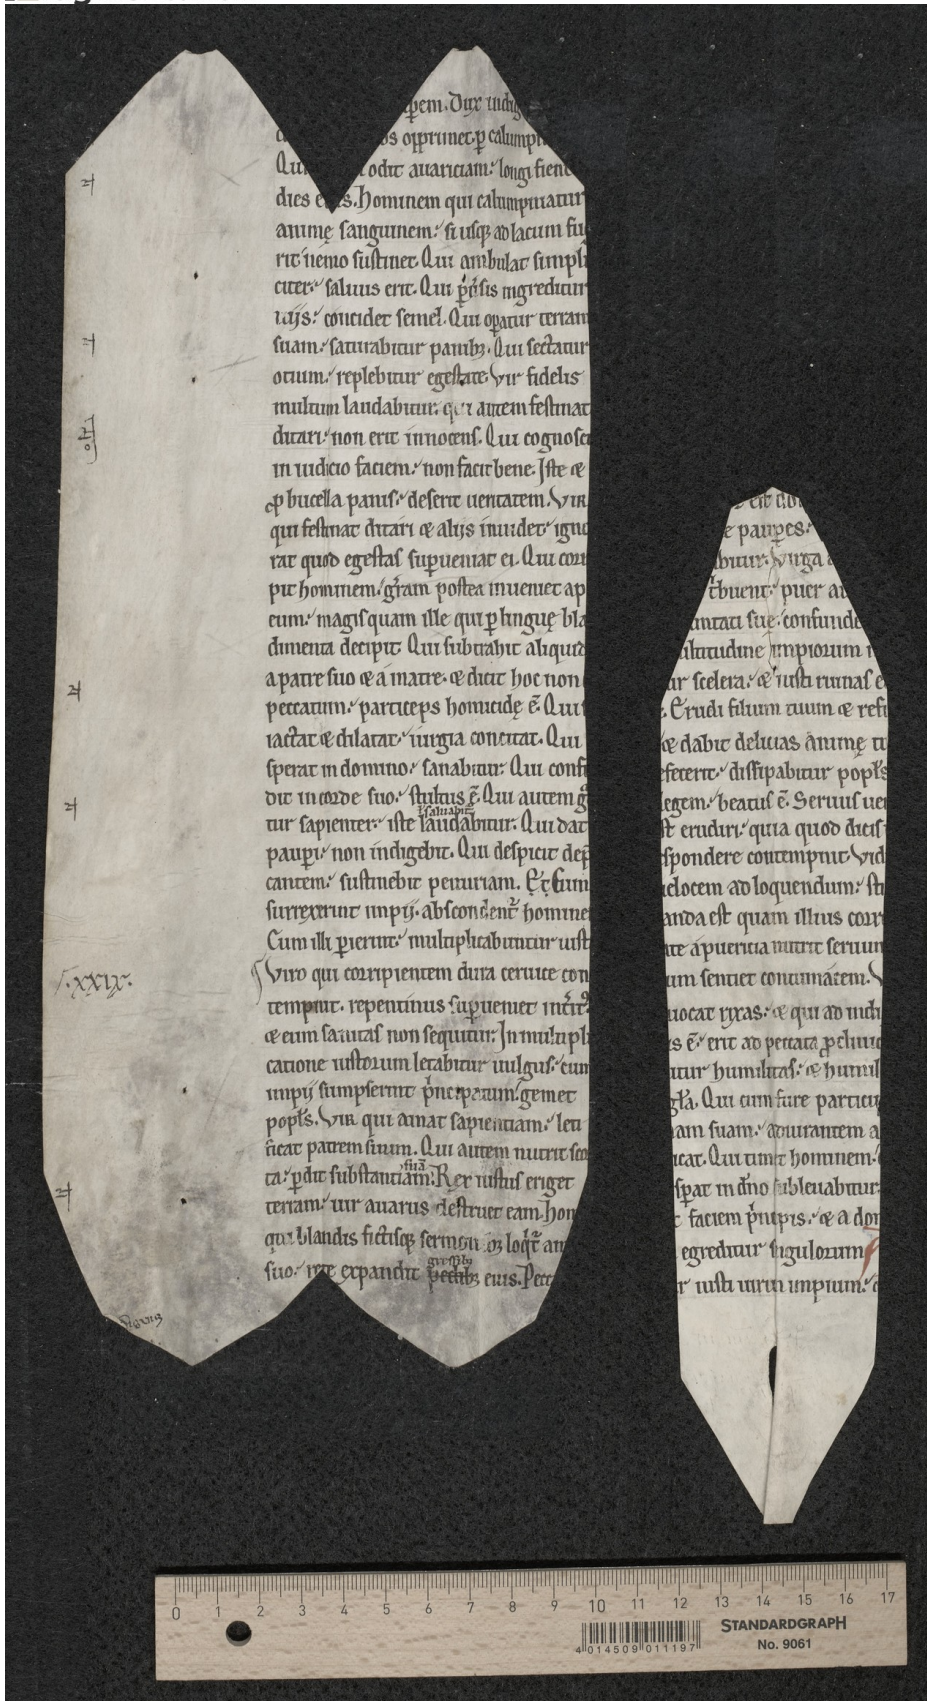 ꝑem. Dux indig
os oppͥmet ꝑ calumpn
Qui odit auariciam: longi fient
dies ei s. Hominem qui calumpniatur
animę sanguinem: si usq; ad lacum fug
rit nemo sustinet. Qui ambulat simpli
citer: saluus erit. Qui ꝑuͥsis ingreditur
uijs: concidet semel. Qui oꝑatur terram
suam: saturabitur panib;. Qui sectatur
otium: replebitur egestate. Vir fidelis
multum laudabitur: qui autem festinat
ditari: non erit innocens. Qui cognosci
in iudicio faciem: non facit bene. Iste &
ꝓ bucella panis: deserit ueritatem. Vir
qui festinat ditari & alijs inuidet: igno
rat quod egestas suꝑueniat ei. Qui corri
pit hominem: gr̄am postea inueniet ap
eum: magis quam ille qui ꝑ linguę bla
dimenta decipit. Qui subtrahit aliquid
a patre suo & a matre. & dicit hoc non
peccatum: particeps homicidę ē. Qui s
iactat & dilatat: iurgia concitat. Qui
sperat in domino: sanabitur. Qui confi
dit in corde suo: stultus ē. Qui autem gͣ
ł saluabit᷑
tur sapienter: iste laudabitur. Qui dat
pauꝑi: non indigebit. Qui despicit dep̄
cantem: sustinebit penuriam. Et Cum
surrexerint impij. abscondent᷑ homine
Cum illi ꝑierint: multiplicabuntur iusti
.XXIX. Viro qui corripientem dura ceruice con
tempnit. repentinus suꝑueniet int̄it᷒
& eum sanitas non sequitur: In multipli
catione iustorum letabitur uulgus: cum
impij sumpserint pͥncipatum: gemet
popl̄s. Vir qui amat sapientiam: leti
ficat patrem suum. Qui autem nutrit sco
suā
ta: ꝑdit substantiam. Rex iustus eriget
terram: uir auarus destruet eam. Hom
qui blandis fictisq; sermonib; loqt᷑ am
gressib;
suo: rete expandit pedib; eius. Pecc
e pauꝑes:
bitur. Virga
t̄buent: puer au
untati suę: confunde
ultitudine impiorum m
ur scelera: & iusti ruinas e
. Erudi filium tuum & refr
& dabit delicias animę tu
efecerit: dissipabitur popl̄s
legem: beatus ē. Seruus uer
st erudiri: quia quod dicis
spondere contempnit. Vid
uelocem ad loquendum: stu
anda est quam illius corr
ate a puericia nutrit seruum
um sentiet contumacem. V
uocat rixas: & qui ad indi
s ē: erit ad peccata ꝓcliuio
itur humilitas: & humil
gl̄a. Qui cum fure particip
am suam: adiurantem a
icat. Qui timet hominem:
sꝑat in dn̄o subleuabitur:
t faciem pͥncipis: & a dom
egreditur sigulorum
r iusti uirum impium:
0 1 2 3 4 5 6 7 8 9 10 11 12 13 14 15 16 17
STANDARDGRAPH
4 014509 011197
No. 9061